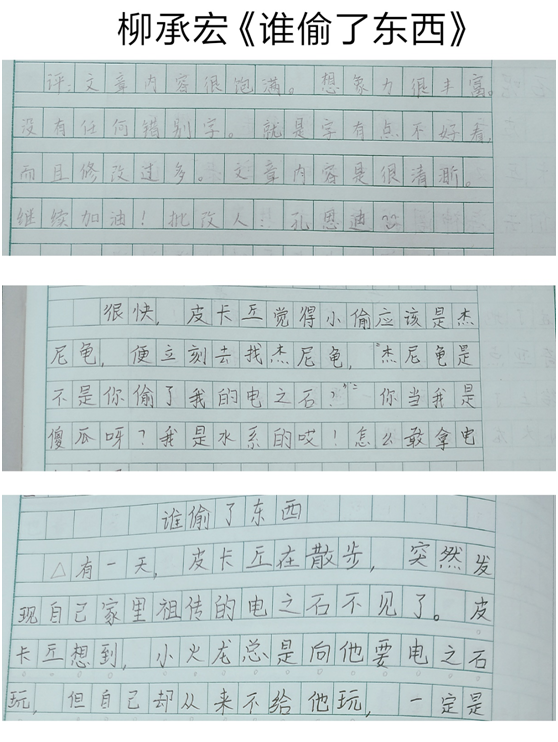 柳承宏《谁偷了东西》
评:文章内容很饱满。想象力很丰富。
没有任何错别字。就是字有点不好看,
而且修改过多。文章内容是很清晰。
继续加油!批改人:孔思迪
很快,皮卡丘觉得小偷应该是杰
尼龟,便立刻去找杰尼龟,“杰尼龟是
不是你偷了我的电之石?”“你当我是
傻瓜呀?我是水系的哎!怎么敢拿电
谁偷了东西
△有一天,皮卡丘在散步,突然发
现自己家里祖传的电之石不见了。皮
卡丘想到,小火龙总是向他要电之石
玩,但自己却从来不给他玩,一定是